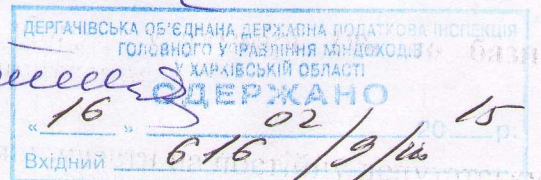 ДЕРГАЧІВСЬКА ОБ'ЄДНАНА ДЕРЖАВНА ПОДАТКОВА ІНСПЕКЦІЯ
ГОЛОВНОГО УПРАВЛІННЯ МІНДОХОДІВ
У ХАРКІВСЬКІЙ ОБЛАСТІ
ОДЕРЖАНО
«16» 02 2015 р.
Вхідний 616/9/